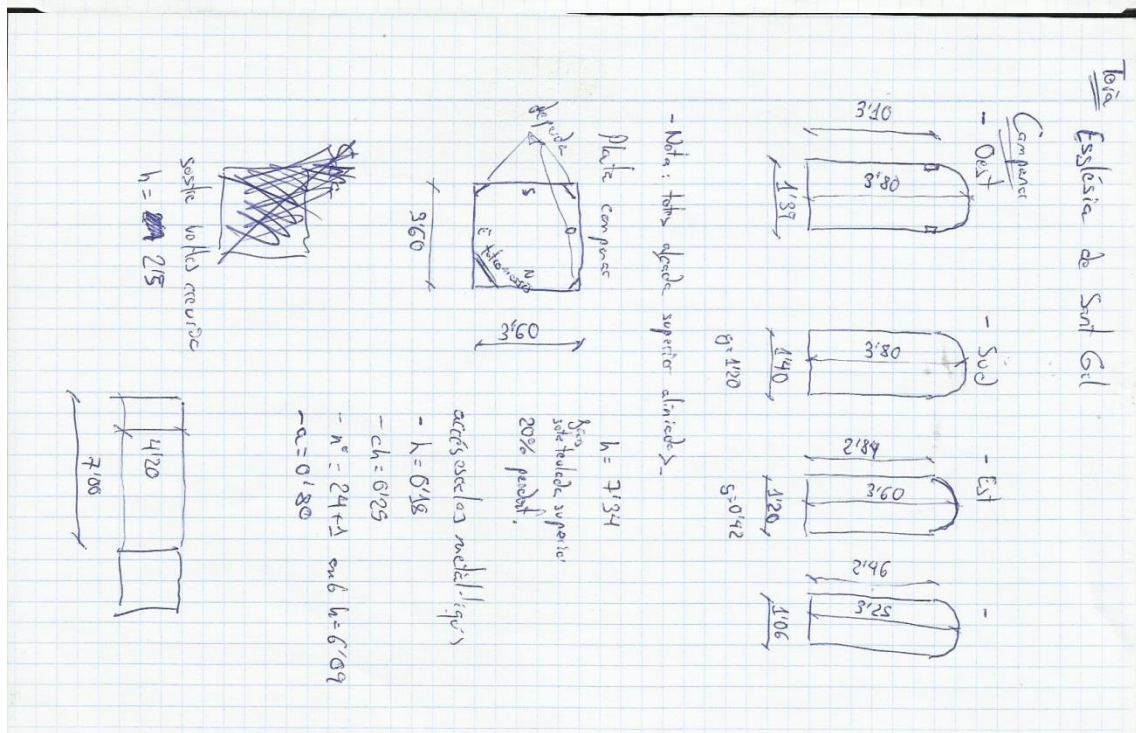 Torà Església de Sant Gil
Campanar
- Oest
3'10
3'80
1'39
- Sud
3'80
1'40
g=1'20
- Est
2'84
3'60
1'20
g=0'42
-
2'46
3'25
1'06
- Nota: totes alçada superior aliniades
Planta campanar
S
O
E
N
3'60
3'60
h = 7'34
sota teulada superior
20% pendent.
accés escales metàl·liques
- h = 6'18
- ch = 6'25
- nº = 24+1 amb h = 6'09
- a = 0'80
sostre voltes creuria
h = 2'5
4'20
7'00